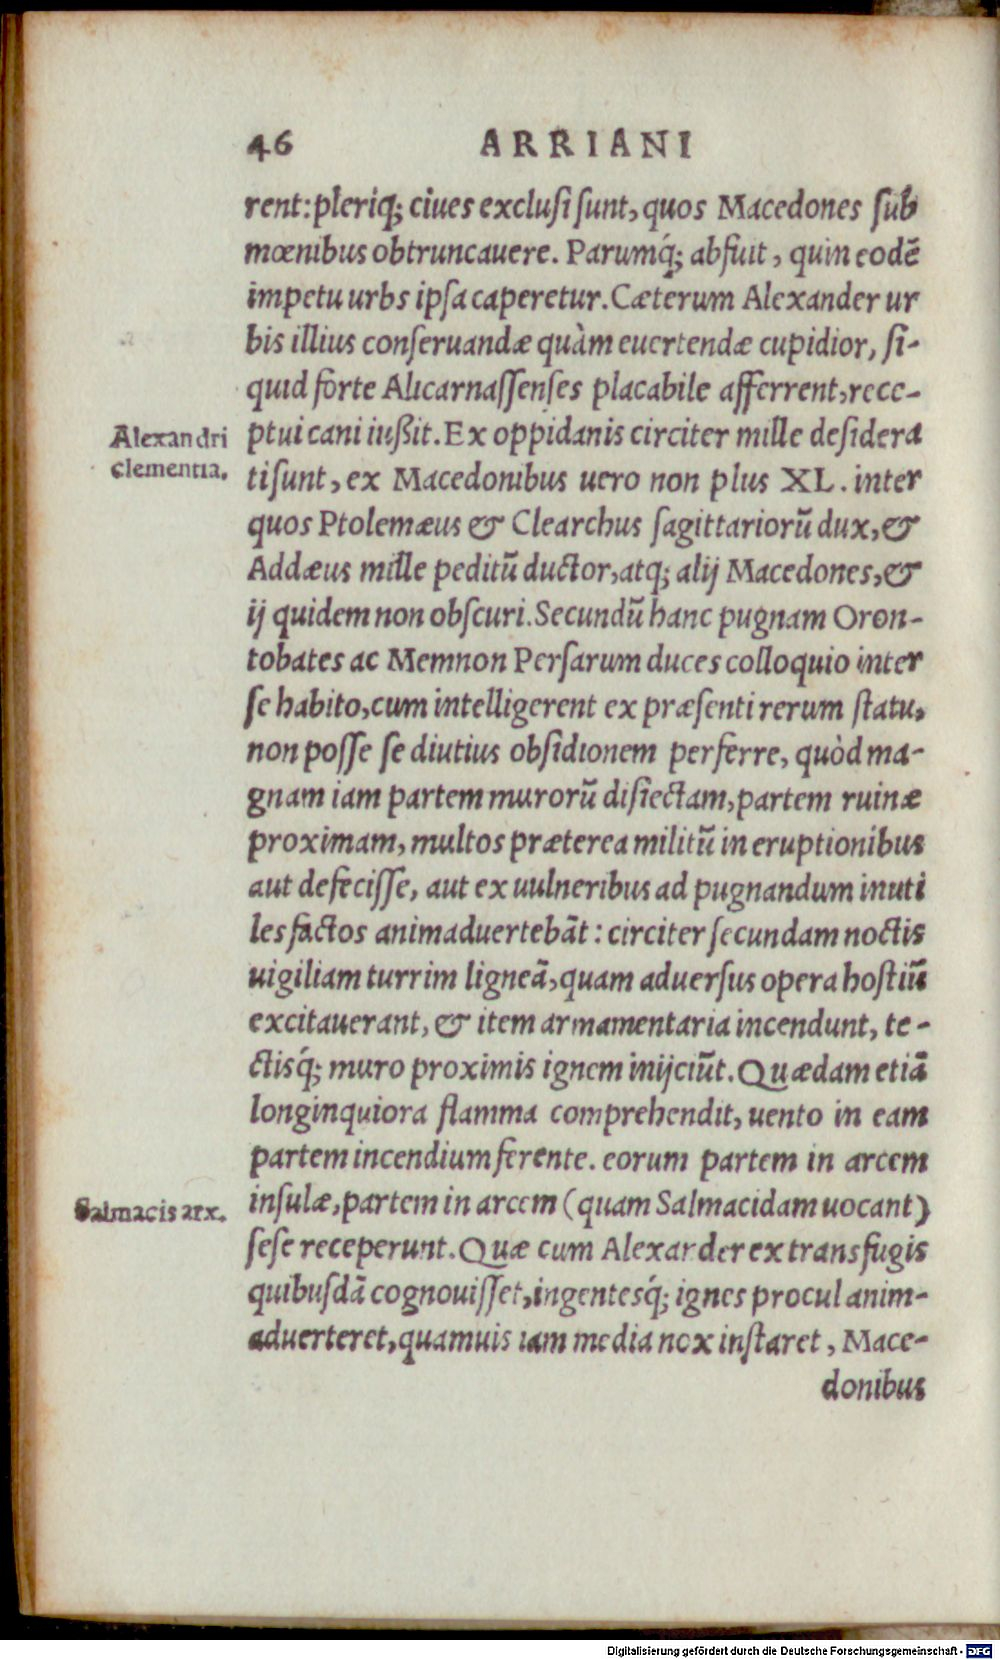 46 ARRIANI
rent: pleriq; ciues exclusi sunt, quos Macedones sub
mœnibus obtruncauere. Parumq́; abfuit, quin eodẽ
impetu urbs ipsa caperetur. Cæterum Alexander ur
bis illius conseruandæ quàm euertendæ cupidior, si-
quid forte Alicarnassenses placabile afferrent, rece-
Alexandri
clementia.
ptui cani iußit. Ex oppidanis circiter mille desidera
ti sunt, ex Macedonibus uero non plus XL. inter
quos Ptolemæus & Clearchus sagittariorũ dux, &
Addæus mille peditũ ductor, atq; alij Macedones, &
ij quidem non obscuri. Secundũ hanc pugnam Oron-
tobates ac Memnon Persarum duces colloquio inter
se habito, cum intelligerent ex præsenti rerum statu,
non posse se diutius obsidionem perferre, quòd ma-
gnam iam partem murorũ disiectam, partem ruinæ
proximam, multos præterea militũ in eruptionibus
aut defecisse, aut ex uulneribus ad pugnandum inuti
les factos animaduertebãt: circiter secundam noctis
uigiliam turrim ligneã, quam aduersus opera hostiũ
excitauerant, & item armamentaria incendunt, te-
ctisq́; muro proximis ignem inijciũt. Quædam etiã
longinquiora flamma comprehendit, uento in eam
partem incendium ferente. eorum partem in arcem
Salmacis arx.
insulæ, partem in arcem (quam Salmacidam uocant)
sese receperunt. Quæ cum Alexander ex transfugis
quibusdã cognouisset, ingentesq́; ignes procul anim-
aduerteret, quamuis iam media nox instaret, Mace-
donibus
Digitalisierung gefördert durch die Deutsche Forschungsgemeinschaft - DFG